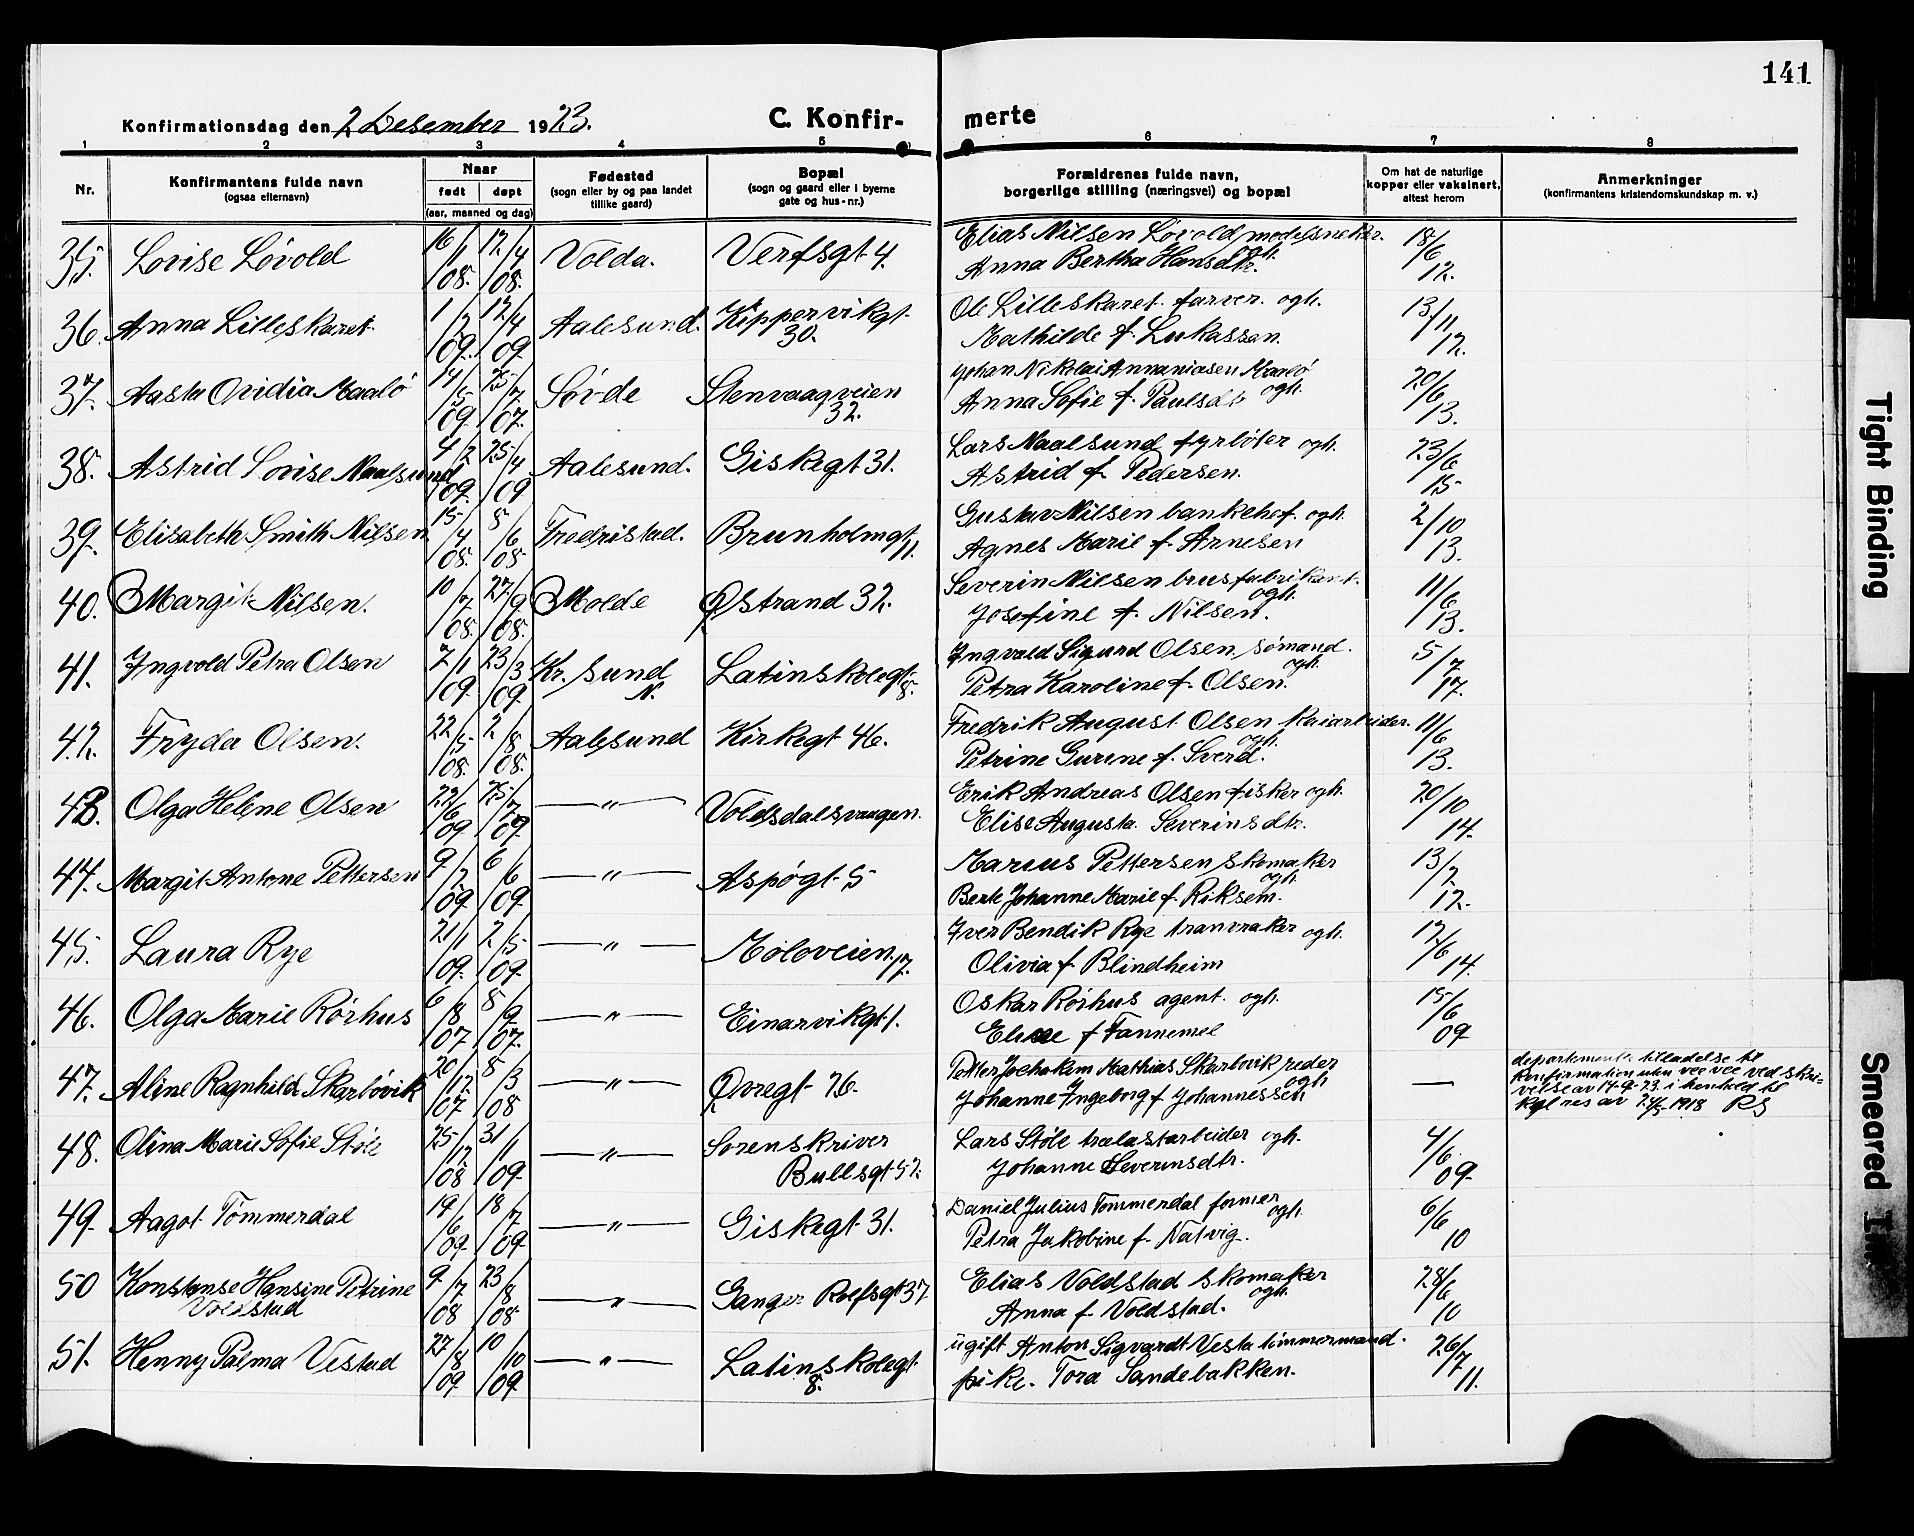 141
Konfirmationsdag den 2 Desember 1923.
C. Konfir-
merte
1 2 3 4 5 6 7 8
Nr.
Konfirmantens fulde navn
(ogsaa efternavn)
Naar
født døpt
(aar, maaned og dag)
Fødested
(sogn eller by og paa landet
tillike gaard)
Bopæl
(sogn og gaard eller i byerne
gate og hus-nr.)
Forældrenes fulde navn,
borgerlige stilling (næringsvei) og bopæl
Om hat de naturlige
kopper eller vaksinert,
attest herom
Anmerkninger
(konfirmantens kristendomskundskap m. v.)
35. Lovise Løvold 16/1/08. 12/4/08. Volda. Verfsgt 4. Elias Nilsen Løvold modelsneker. ogh. 18/6/12.
Anna Bertha Hansdtr.
36. Anna Lilleskaret. 1/2/09. 12/4/09. Aalesund. Kippervikgt 30. Ole Lilleskaret farver. ogh. 13/11/12.
Mathilde f. Lukassen.
37. Aasta Ovidia Maalø 14/5/09. 25/7/07. Søvde Stenvaagveien 32. Johan Nikolai Annaniasen Maalø ogh. 20/6/13.
Anna Sofie f. Paulsdtr
38. Astrid Lovise Naalsund 4/2/09. 25/4/09 Aalesund. Giskegt 31. Lars Naalsund fyrbøter ogh. 23/6/15
Astrid f. Pedersen.
39. Elisabeth Smith Nilsen 15/4/08. 8/6/08 Fredristad. Brunholmgt 11. Gustav Nilsen bankchef. ogh. 2/10/13.
Agnes Marie f. Arnesen
40. Margit Nilsen. 10/7/08. 27/9/08. Molde Østrand 32. Severin Nilsen brusfabrikant. ogh. 11/6/13.
Josefine f. Nilsen.
41. Ingvold Petra Olsen 2/1/09. 23/3/09 Kr. sund N. Latinskolegt 8. Ingvald Sigurd Olsen sømand. ogh. 5/7/17.
Petra Karoline f. Olsen.
42. Fryda Olsen. 22/5/08. 2/8/08. Aalesund Kirkegt 46. Fredrik August Olsen kaiarbeider. ogh. 11/6/13.
Petrine Gurine f. Sverd.
43. Olga Helene Olsen 22/6/09 25/7/09. —"— Voldsdalsvaagen. Erik Andreas Olsen fisker ogh. 20/10/14.
Elise Augusta Severinsdtr.
44. Margit Antone Pettersen 9/2/09 6/6/09. —"— Aspøgt 5 Marius Pettersen skomaker ogh. 13/2/12.
Berte Johanne Marie f. Riksem.
45. Laura Rye 21/1/09. 2/5/09. —"— Moloveien 17. Iver Bendik Rye tranvraker ogh. 12/6/14.
Olivia f Blindheim
46. Olga Marie Rørhus 6/8/07 8/9/07. —"— Einarvikgt 1. Oskar Rørhus agent. ogh. 15/6/09
f Tannemel
47. Aline Ragnhild Skarbøvik 20/12/07 8/3/08 —"— Øvregt 26. Petter Joehakim Mathias Skarbøvik reder ogh —
Johanne Ingeborg f Johannessen
departements tilladelse til
konfirmation uten vee vee ved skri-
velse av 14-9-23 i henhold til
kgl res av 24/5-1918 RS
48. Olina Marie Sofie Støle 25/12/08 31/1/09. —"— Sorenskriver Bullsgt 52. Lars Støle trælastarbeider ogh. 4/6/09
Johanne Severinsdtr.
49. Aagot Tømmerdal 19/6/09 18/7/09. —"— Giskegt 31. Daniel Julius Tømmerdal former ogh. 6/6/10
Petra Jakobine f. Natvig.
50 Konstanse Hansine Petrine
Voldstad 9/7/08 23/8/08. —"— Ganger Rolfsgt 37. Elias Voldstad skomaker ogh. 28/6/10
Anna f. Voldstad.
51. Henny Palma Vestad 27/8/09. 10/10/09. —"— Latinskolegt 8. ugift Anton Sigvardt Vesta tømmermand. 26/7/11.
pike. Tora Sandebakken.
Tight Binding
Smeared Ink